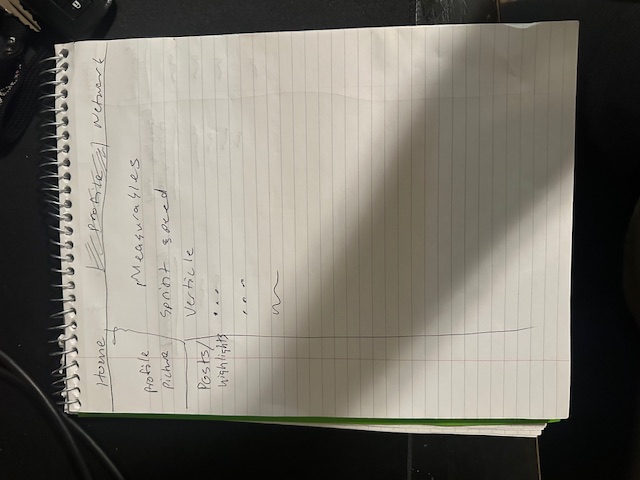 Home Profile Network
Profile
Picture
Posts/
Highlights
Measurables
Sprint speed
Verticle
...
...